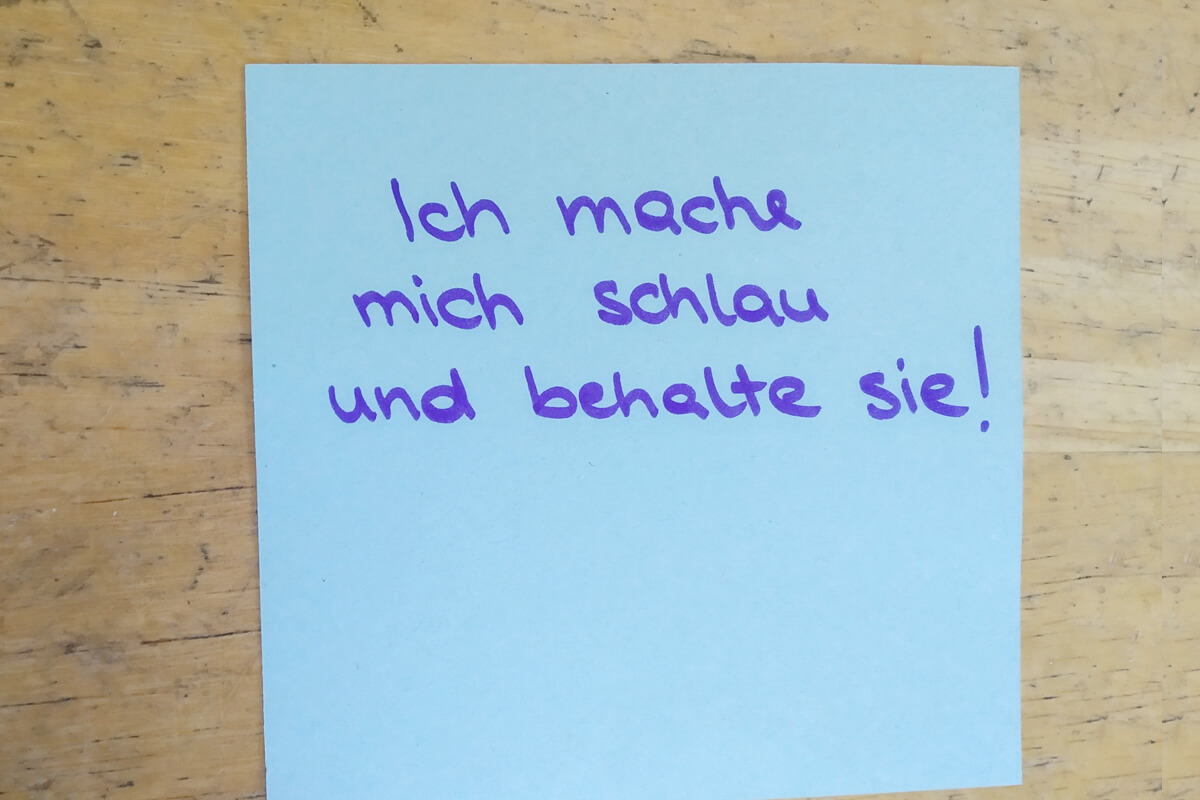 Ich mache
mich schlau
und behalte sie!